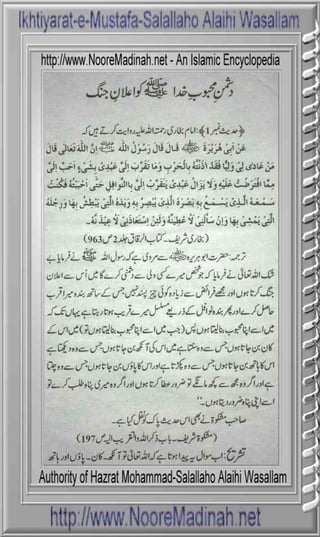 Ikhtiyarat-e-Mustafa-Salallaho Alaihi Wasallam
http://www.NooreMadinah.net - An Islamic Encyclopedia
دشمنِ محبوبِ خدا ﷺ کو اعلانِ جنگ
﴿حدیث نمبر 1﴾: امام بخاری رحمۃ اللہ علیہ روایت کرتے ہیں کہ
عَنْ اَبِیْ هُرَیْرَةَ قَالَ قَالَ رَسُوْلُ اللّٰہِ ﷺ اِنَّ اللّٰہَ تَعَالٰی قَالَ
مَنْ عَادٰی لِیْ وَلِیًّا فَقَدْ اٰذَنْتُهٗ بِالْحَرْبِ وَمَا تَقَرَّبَ اِلَیَّ عَبْدِیْ بِشَیْءٍ اَحَبَّ اِلَیَّ
مِمَّا افْتَرَضْتُ عَلَیْهِ وَلَا یَزَالُ عَبْدِیْ یَتَقَرَّبُ اِلَیَّ بِالنَّوَافِلِ حَتّٰی اَحْبَبْتُهٗ فَكُنْتُ
سَمْعَهُ الَّذِیْ یَسْمَعُ بِهٖ وَبَصَرَهُ الَّذِیْ یُبْصِرُ بِهٖ وَیَدَهُ الَّتِیْ یَبْطِشُ بِهَا وَرِجْلَهُ
الَّتِیْ یَمْشِیْ بِهَا وَاِنْ سَاَلَنِیْ لَاُعْطِیَنَّهٗ وَلَئِنِ اسْتَعَاذَنِیْ لَاُعِیْذَنَّهٗ۔
(بخاری شریف۔ کتاب الرقاق جلد 2 ص 963)
ترجمہ: حضرت ابو ہریرہ سے مروی ہے کہ رسول اللہ ﷺ نے فرمایا بے
شک اللہ تعالیٰ نے فرمایا کہ جو شخص میرے کسی ولی سے دشمنی کرے گا میں اُس سے اعلان
جنگ کرتا ہوں اور مجھے فرائض سے زیادہ کوئی چیز پسند نہیں جس کے ساتھ بندہ میرا قرب
حاصل کرے اور پھر بندہ نوافل کے ذریعے مسلسل میرے قریب ہوتا رہتا ہے یہاں تک کہ
میں اسے اپنا محبوب بنا لیتا ہوں پس (جب میں اسے اپنا محبوب بنا لیتا ہوں تو) میں اس کے
کان بن جاتا ہوں جس سے وہ سنتا ہے میں اس کی آنکھ بن جاتا ہوں جس سے وہ دیکھتا ہے
اس کا ہاتھ بن جاتا ہوں جس سے وہ پکڑتا ہے اور اس کا پاؤں بن جاتا ہوں جس سے وہ چلتا
ہے اور اگر وہ مجھ سے کچھ مانگے تو ضرور عطا کرتا ہوں اور اگر وہ میری پناہ طلب کرے تو
اسے اپنی پناہ ضرور دیتا ہوں۔"
صاحبِ مشکوٰۃ نے بھی اس حدیث پاک کو نقل کیا ہے۔
(مشکوٰۃ شریف۔ باب ذکر اللہ والتقرب الیہ ص 197)
تشریح: اب سوال یہ پیدا ہوتا ہے کہ اللہ تعالیٰ تو آنکھ۔ کان۔ پاؤں اور ہاتھ
Authority of Hazrat Mohammad-Salallaho Alaihi Wasallam
http://www.NooreMadinah.net